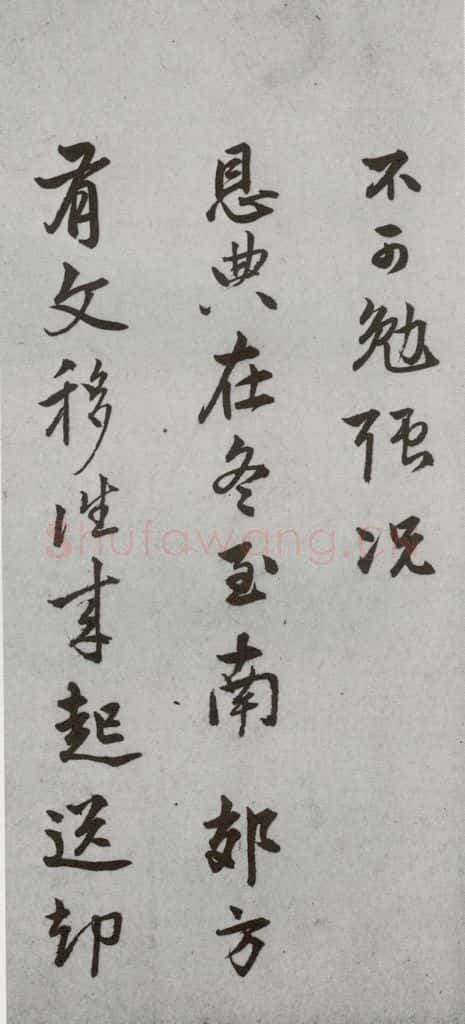 不可勉强况
恩典在冬至南郊方
有文移往来起送却
shufawang.cn